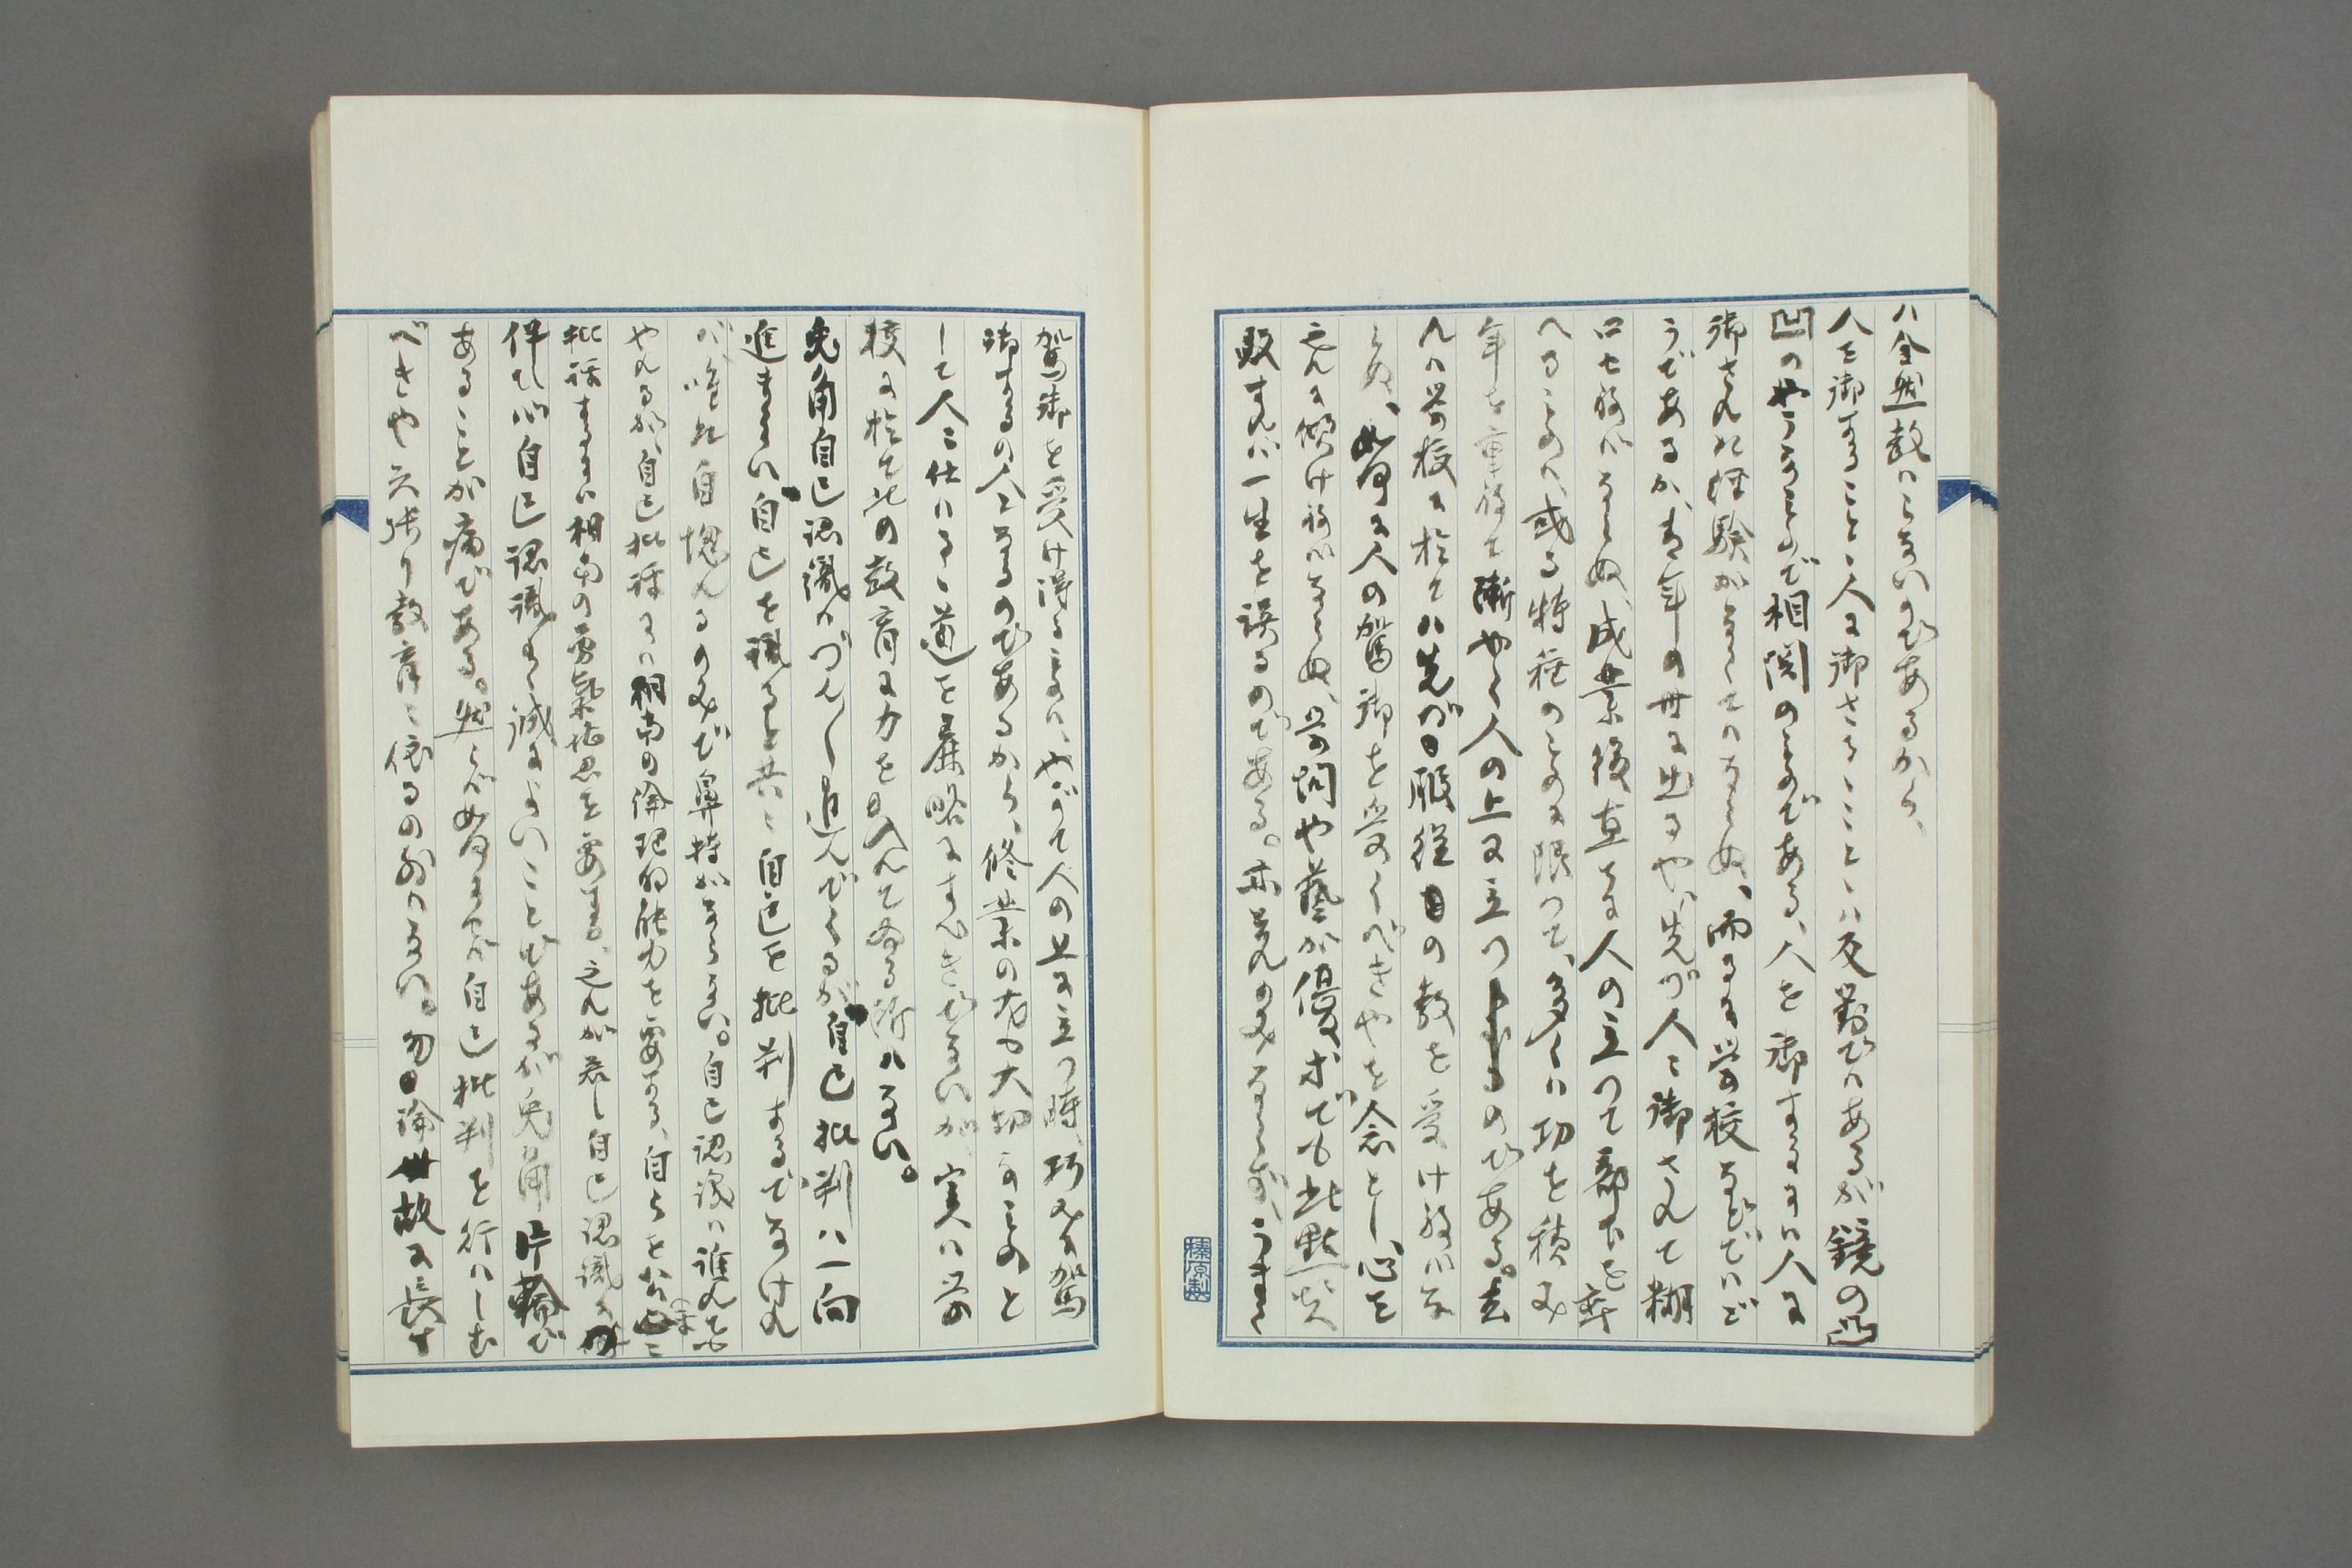 ハ全然教ハらないのであるから、
人を御することと人に御さるることとハ反對でハあるが鏡の凸
凹のやうなもので相関のものである、人を御するにハ人に
御された経験がなくてハならぬ、而るに学校などでハど
うであるか、青年の世に出るや、先づ人に御されて糊
口せねバならぬ、成業後直ちに人の上に立つて部下を率
へるものハ或る特種のものに限つて、多くハ功を積み
年を重ねて漸やく人の上に立つものである。去
れバ学校に於てハ先づ服従の教を受けねバな
らぬ、如何に人の駕御を受くべきやを念とし、心を
之れに傾けねバならぬ、学問や藝が優れていても此點に失
敗すれバ一生を誤るのである。
駕御を受け得るものハ、やがて人の上に立つ時、巧みに駕
御するの人となるのであるから、修業の尤も大切なものと
して人に仕ハるる道を麁略にすべきでないが、実ハ学
校に於て此の教育に力を入れて居る所ハない。
兎角自己認識ハづんく進んでくるが自己批判ハ一向
進まない、自己を識ると共に自己を批判するでなけれ
バ、唯だ自愧れるのみで鼻持がならない。自己認識ハ誰れでも
やれるが、自己批評にハ相当の論理的能力を要する、自らを公正に
批評するにハ相当の勇氣
伴ても自己認識
あることが痛である。然らバ如何にせバ自己批判を行ハしむ
べきや、矢張り教育に依るの外ハない。勿論世故に長す
榛原製